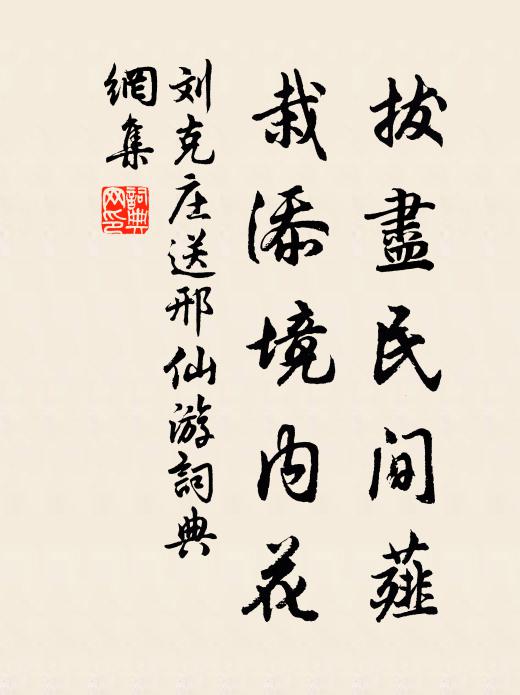 拔盡民间薤
栽添境内花
刘克庄送邢仙游詞典
網集
詞典网印